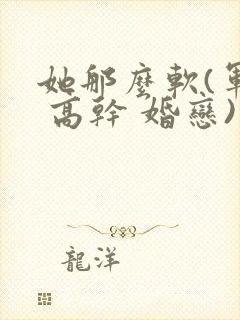 她那麼軟(軍
高幹 婚戀)
龍洋